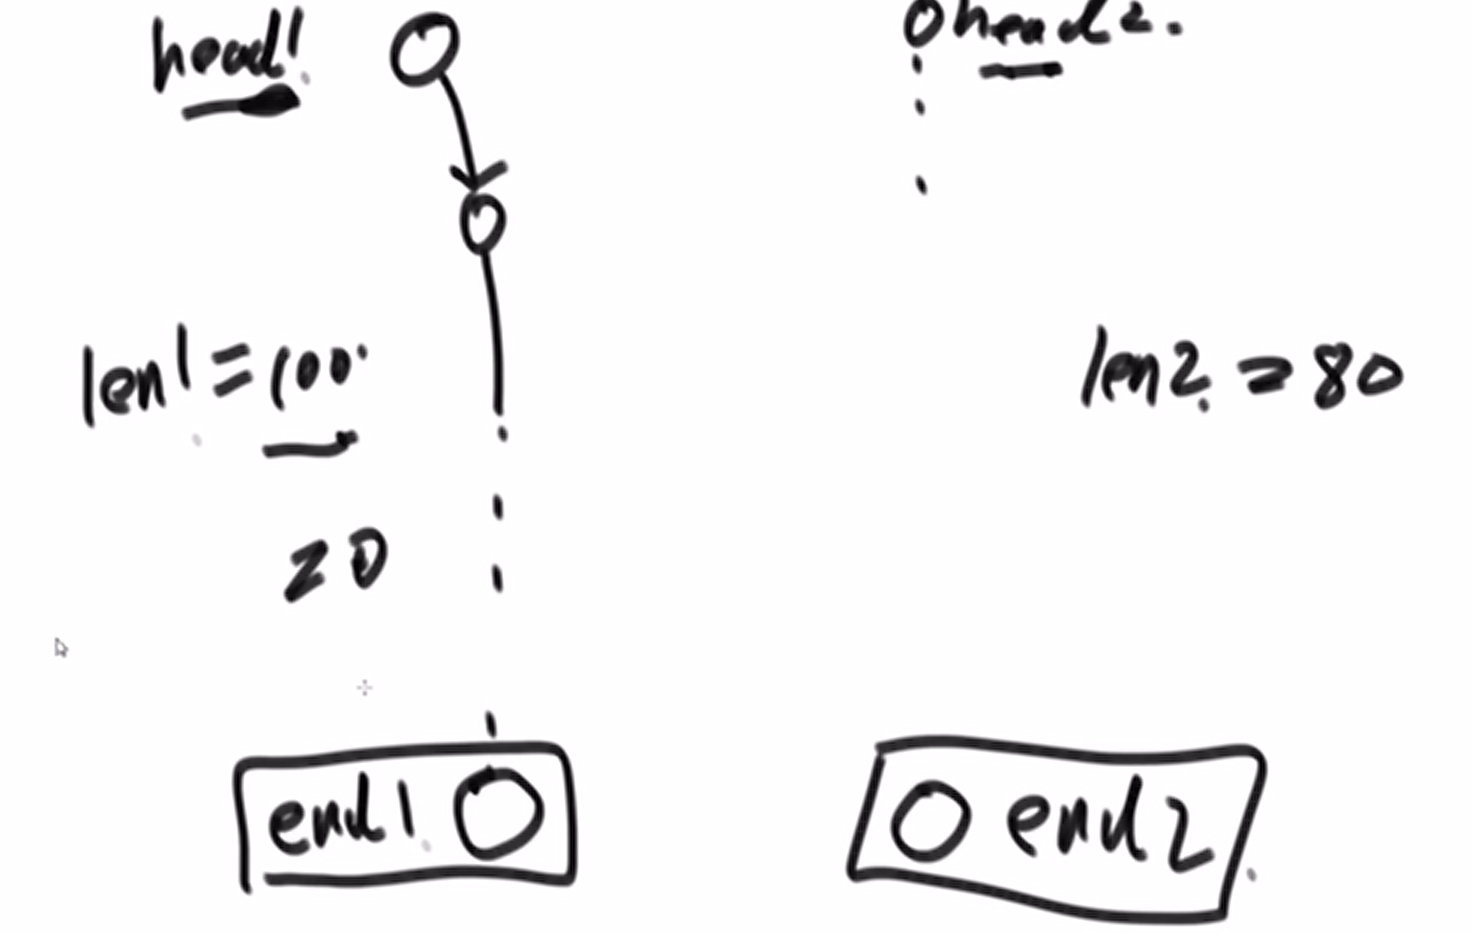 head1
head2.
len1=100
len2=80
20
end1
end2